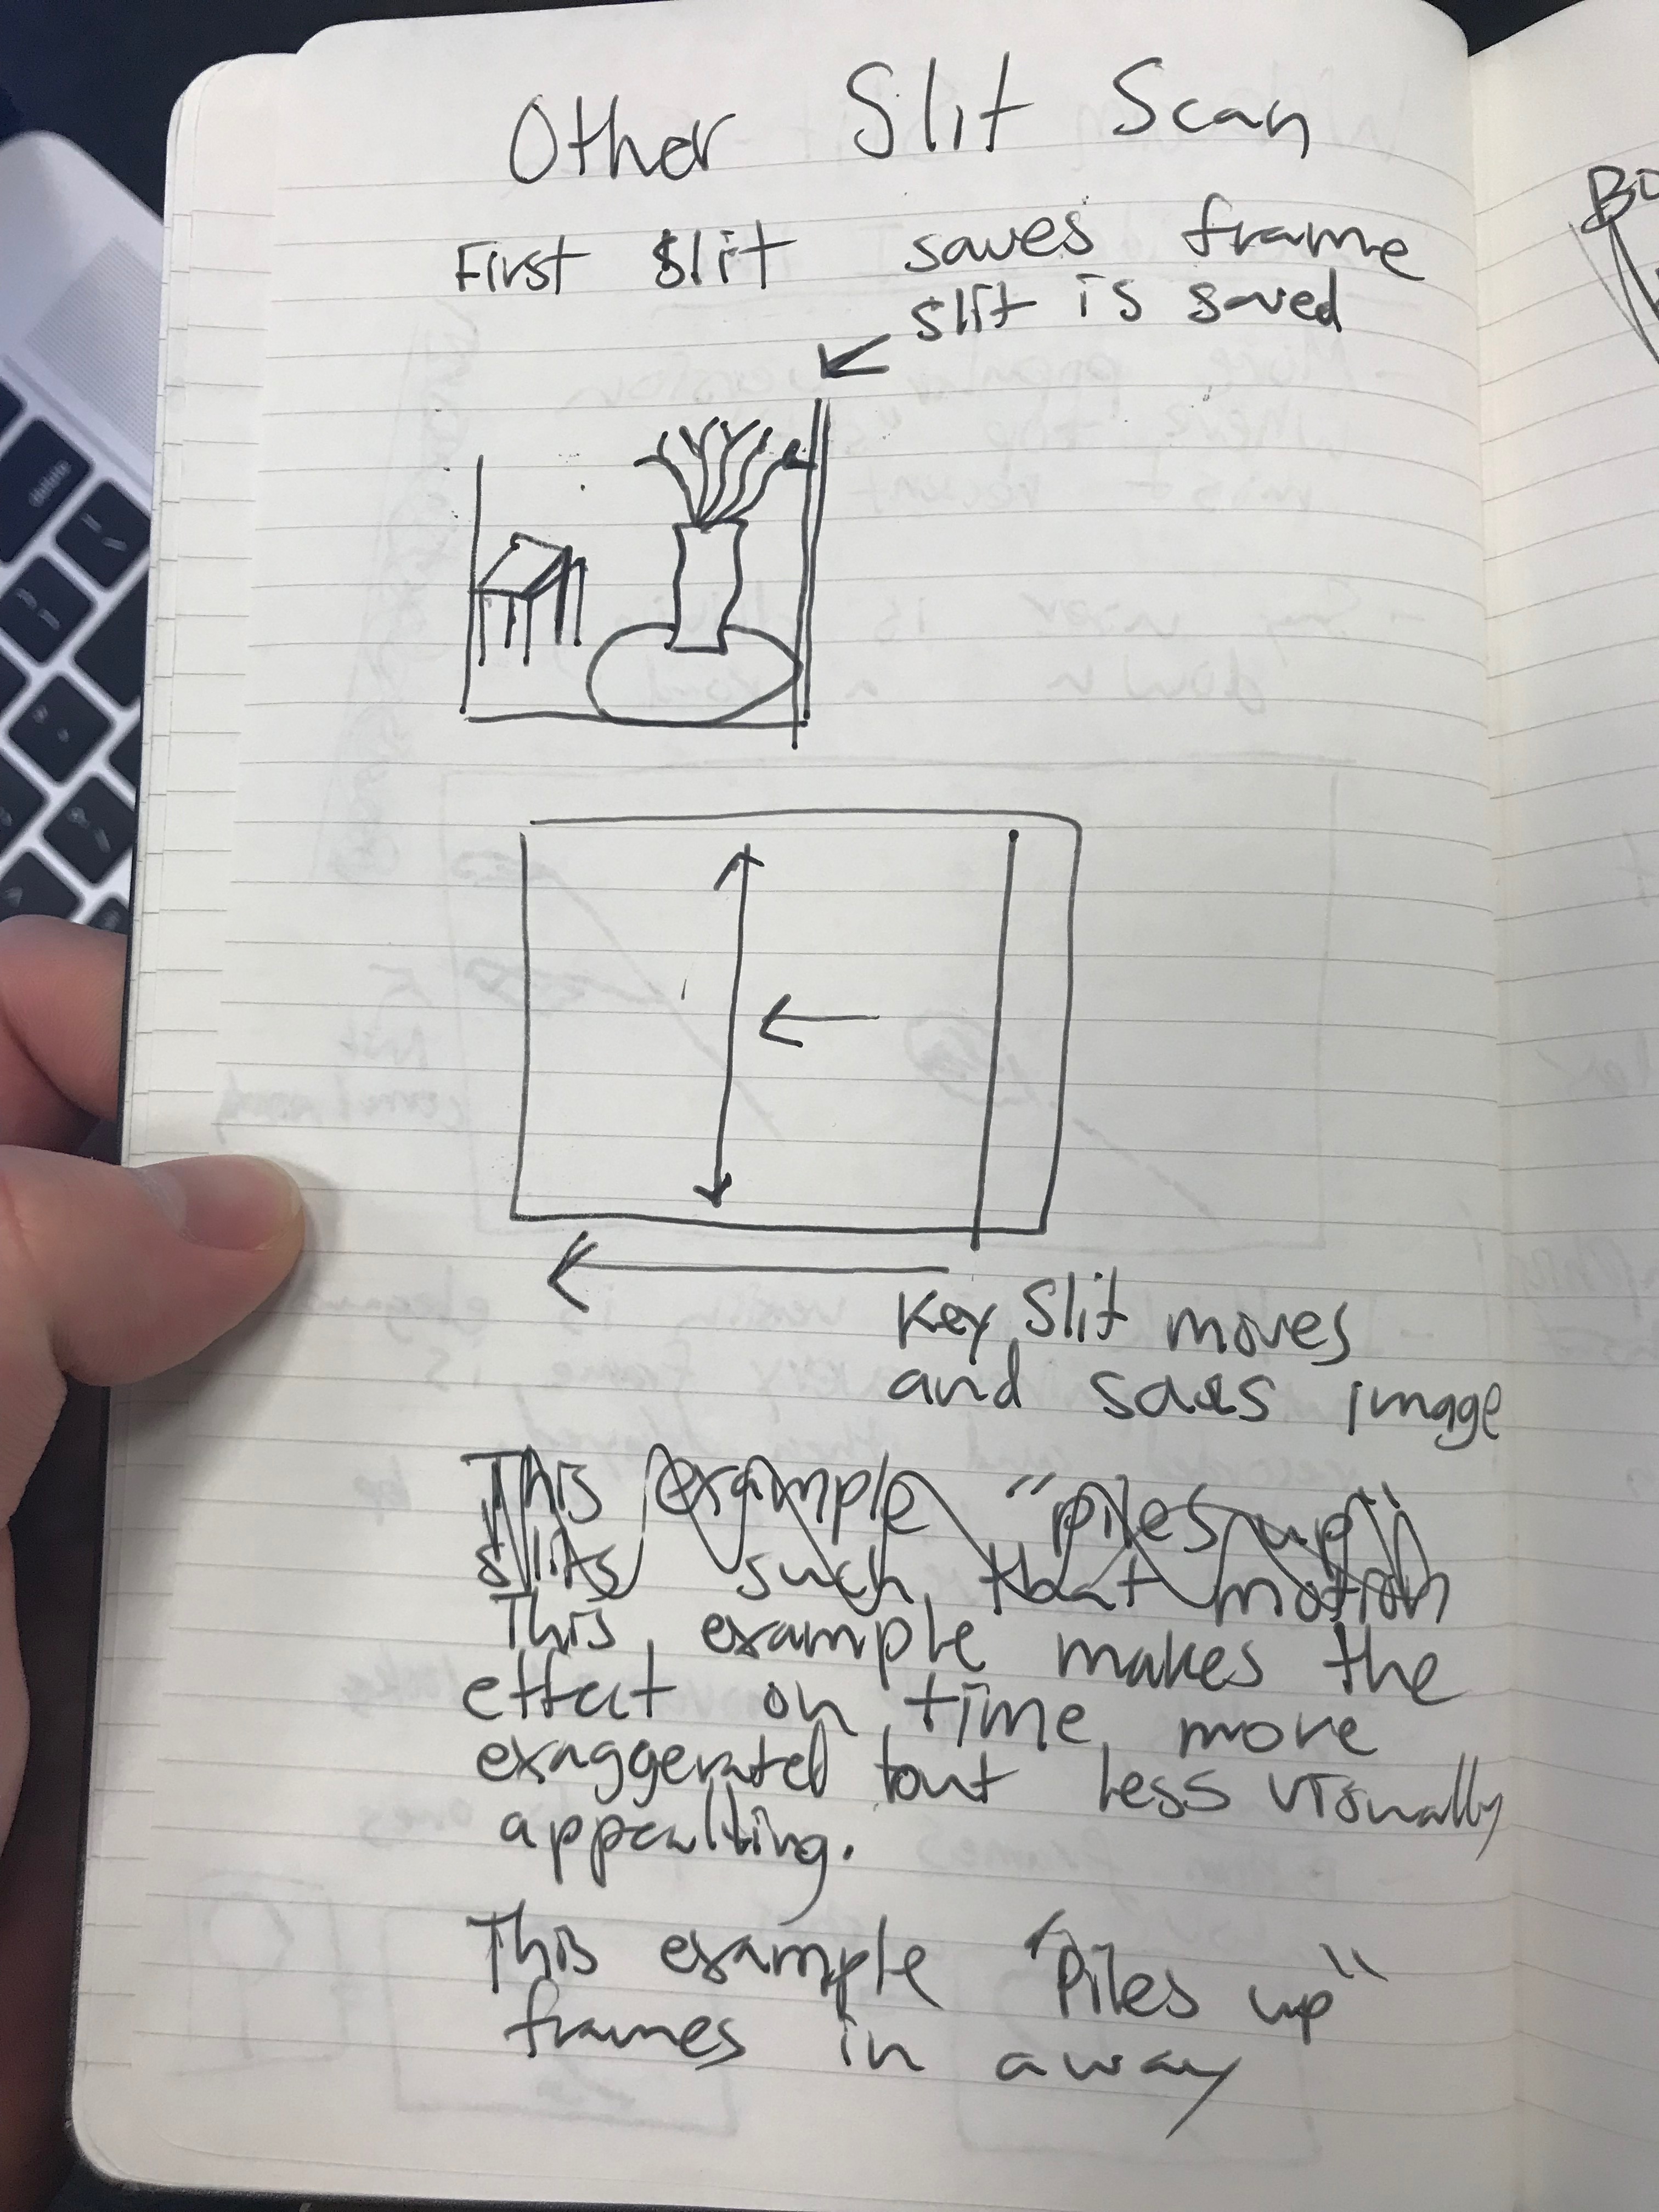 Other Slit Scan
First Slit
saves frame
slit is saved
Key Slit moves
and saves image
This example "piles up"
slits such that motion
This example makes the
effect on time more
exaggerated but less visually
appealling.
This example "Piles up"
frames in away
Bo
delete